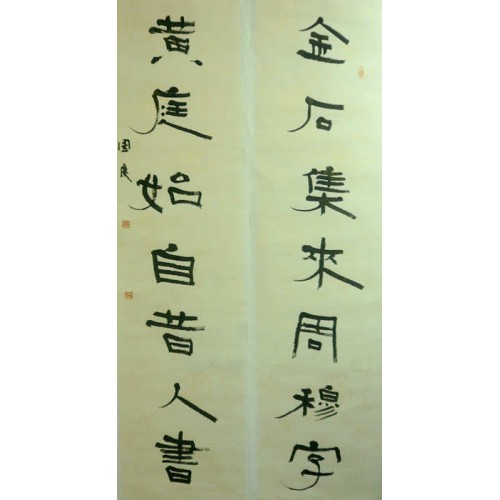 金石集來周穆字
黃庭始自昔人書